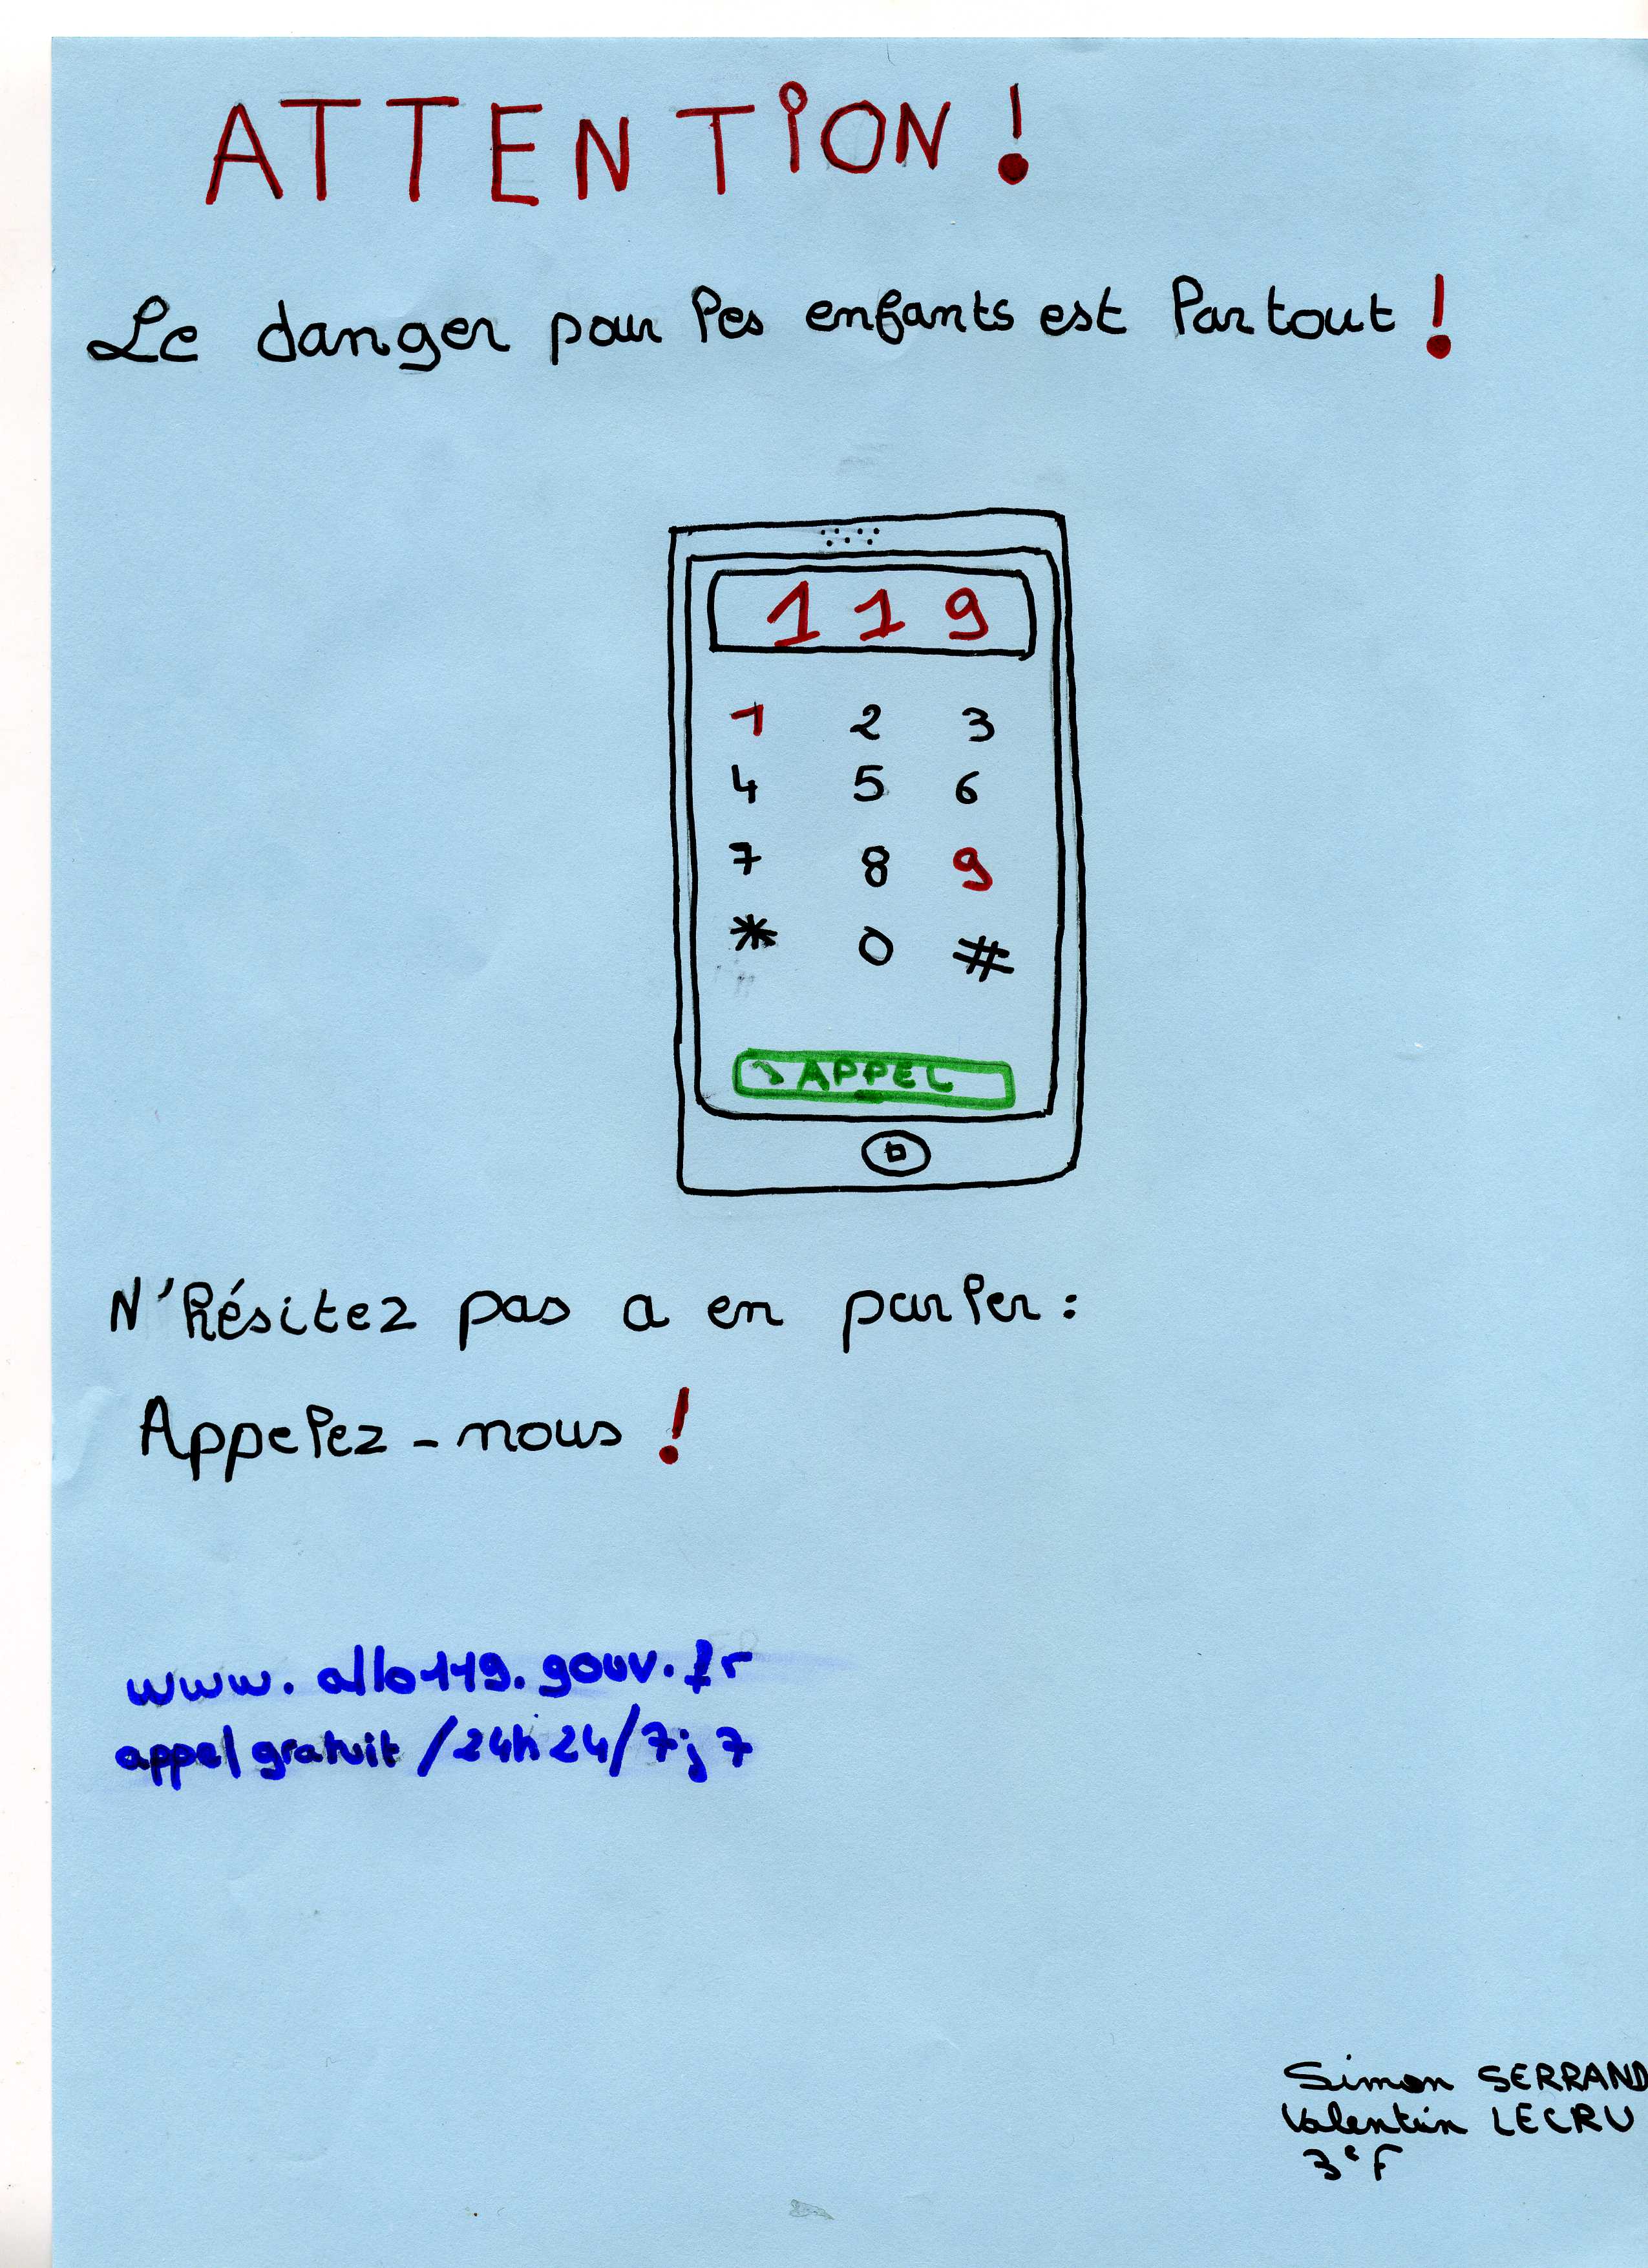 ATTENTION !
Le danger pour les enfants est Partout !
119
1 2 3
4 5 6
7 8 9
* 0 #
APPEL
N'hésitez pas a en parler :
Appelez-nous !
www.allo119.gouv.fr
appel gratuit /24h24/7j7
Simon SERRAND
Valentin LECRU
3e F